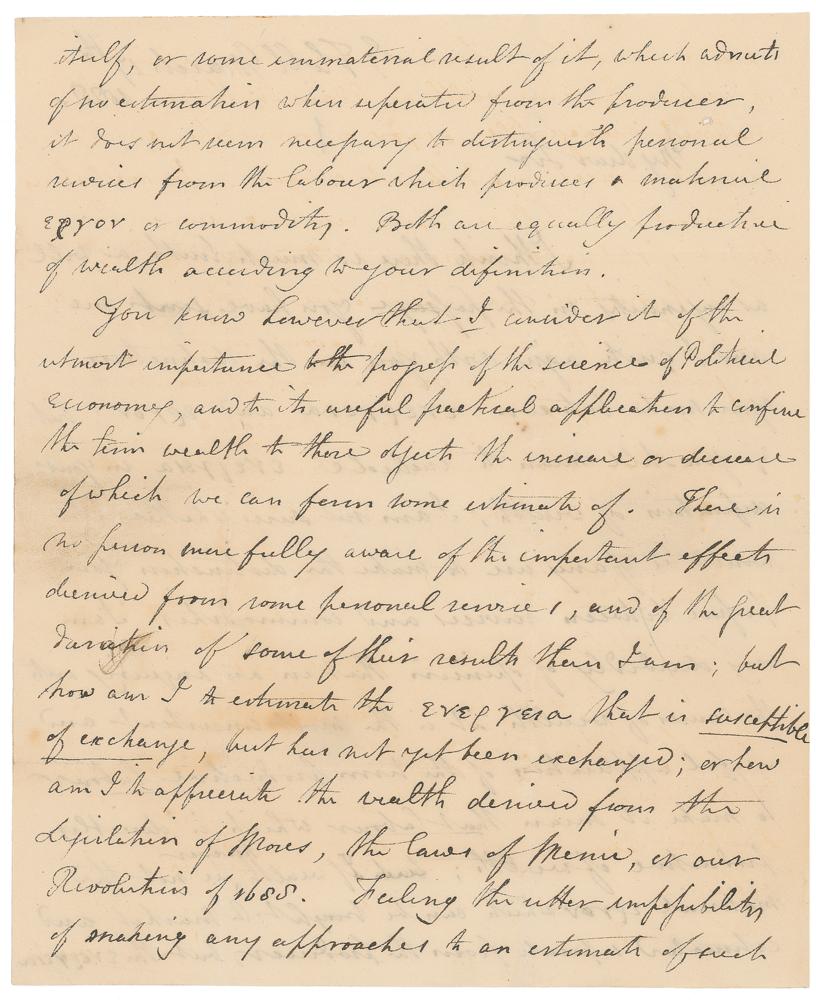 itself, or some immaterial result of it, which admits
of no estimation when seperated from the producer,
it does not seem necessary to distinguish personal
services from the labour which produces a material
εργον or commodity. Both are equally productive
of wealth according to your difinition.
You know however that I consider it of the
utmost importance to the progress of the science of Political
Economy, and to its useful practical application to confine
the term wealth to those objects the increase or decrease
of which we can form some estimate of. There is
no person more fully aware of the important effects
derived from some personal services, and of the great
duration of some of their results than I am; but
how am I to estimate the ενεργεια that is susceptible
of exchange, but has not yet been exchanged; or how
am I to appreciate the wealth derived from the
Legislation of Moses, the laws of Menu, or our
Revolution of 1688. Feeling the utter impossibility
of making any approaches to an estimate of such